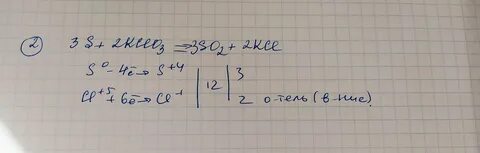 ② 3S + 2KClO₃ = 3SO₂ + 2KCl
S⁰ - 4ē → S⁺⁴ | 12 | 3
Cl⁺⁵ + 6ē → Cl⁻¹ | | 2 о-тель (в-ние)